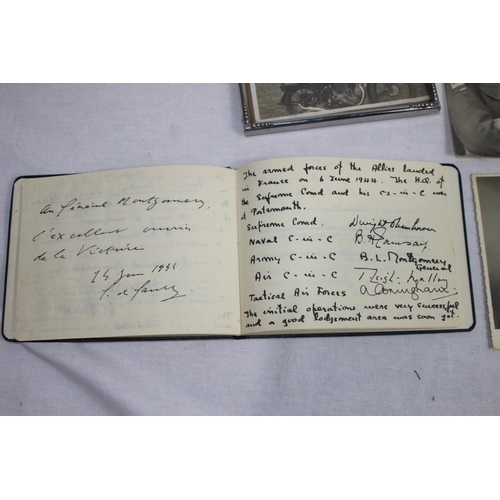 Au Général Montgomery,
l'excellent ouvrier
de la Victoire
14 Juin 1944
C. de Gaulle
The armed forces of the Allies landed
in France on 6 June 1944. The H.Q of
the Supreme Comd and his Cs-in-C was
at Portsmouth.
Supreme Comd. Dwight Eisenhower
Naval C-in-C B H Ramsay.
Army C-in-C B. L. Montgomery
General
Air C-in-C T Leigh-Mallory
Tactical Air Forces A Coningham.
The initial operations were very successful
and a good lodgement area was soon got.